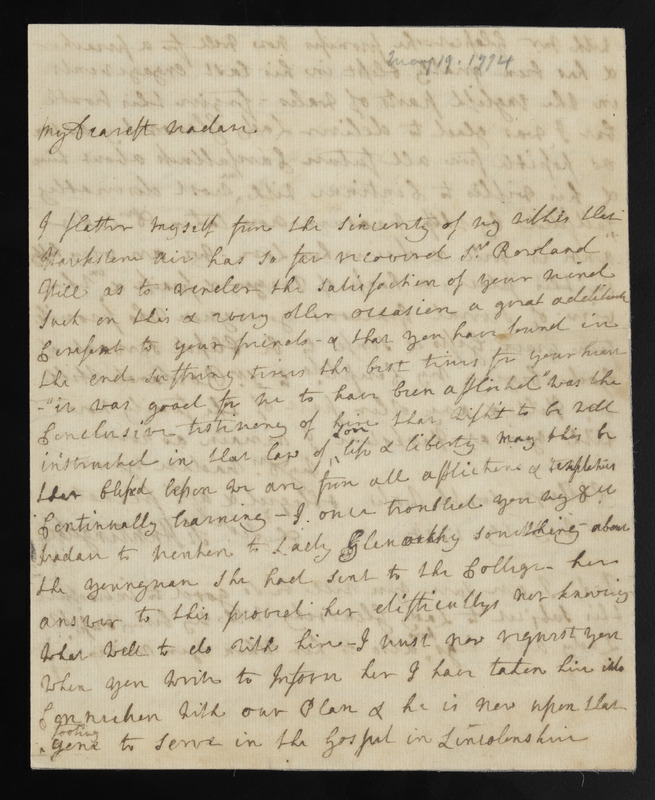 May 19. 1774
My Dearest Madam
I flatter myself from the sincerity of my wishes that
Hawkstone air has so far recovered Sr. Rowland
Hill as to render the satisfaction of your mind
such on this & every other occasion a great additional
Comfort to your friends - & that you have found in
the end suffering times the best times for your heart
- "it was good for me to have been afflicted" was the
Conclusive testimony of him that wish't to be well
instructed in that law of love life & liberty may this be
that blessed lesson we are from all afflictions & temptations
Continually learning - I once troubled you my
Madam to mention to Lady Glenorchy something about
the young man she had sent to the College - her
answer to this proved her difficultys not knowing
what well to do with him - I must now request you
when you write to Inform her I have taken him into
Connection with our Plan & he is now upon that
footing
gone to serve in the Gospel in Lincolnshire